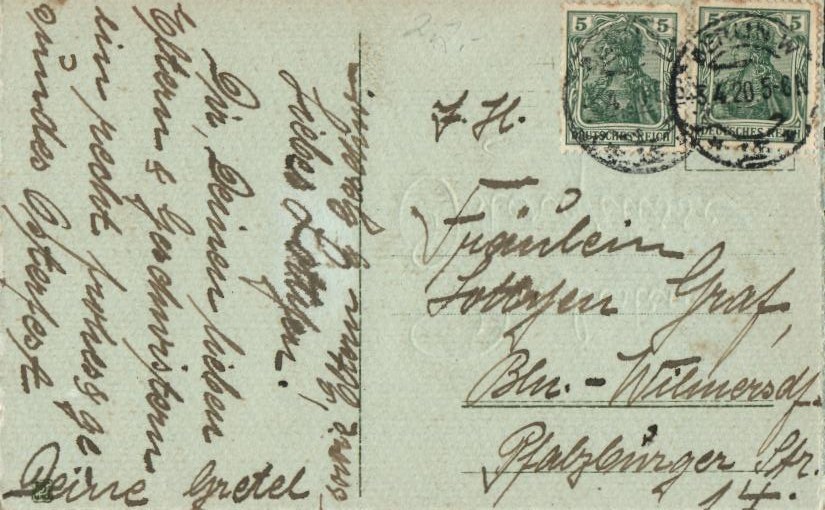 Liebes Lottchen.
Dir, Deinen lieben
Eltern & Geschwistern
ein recht frohes & ge
sundes Osterfest
Deine Gretel
2,-
5 5
DEUTSCHES REICH
5 5
DEUTSCHES REICH
BERLIN W
3.4.20.5-6N
Z. H.
Fräulein
Lottchen Graf,
Bln.-Wilmersdf.
Pfalzburger Str.
14.